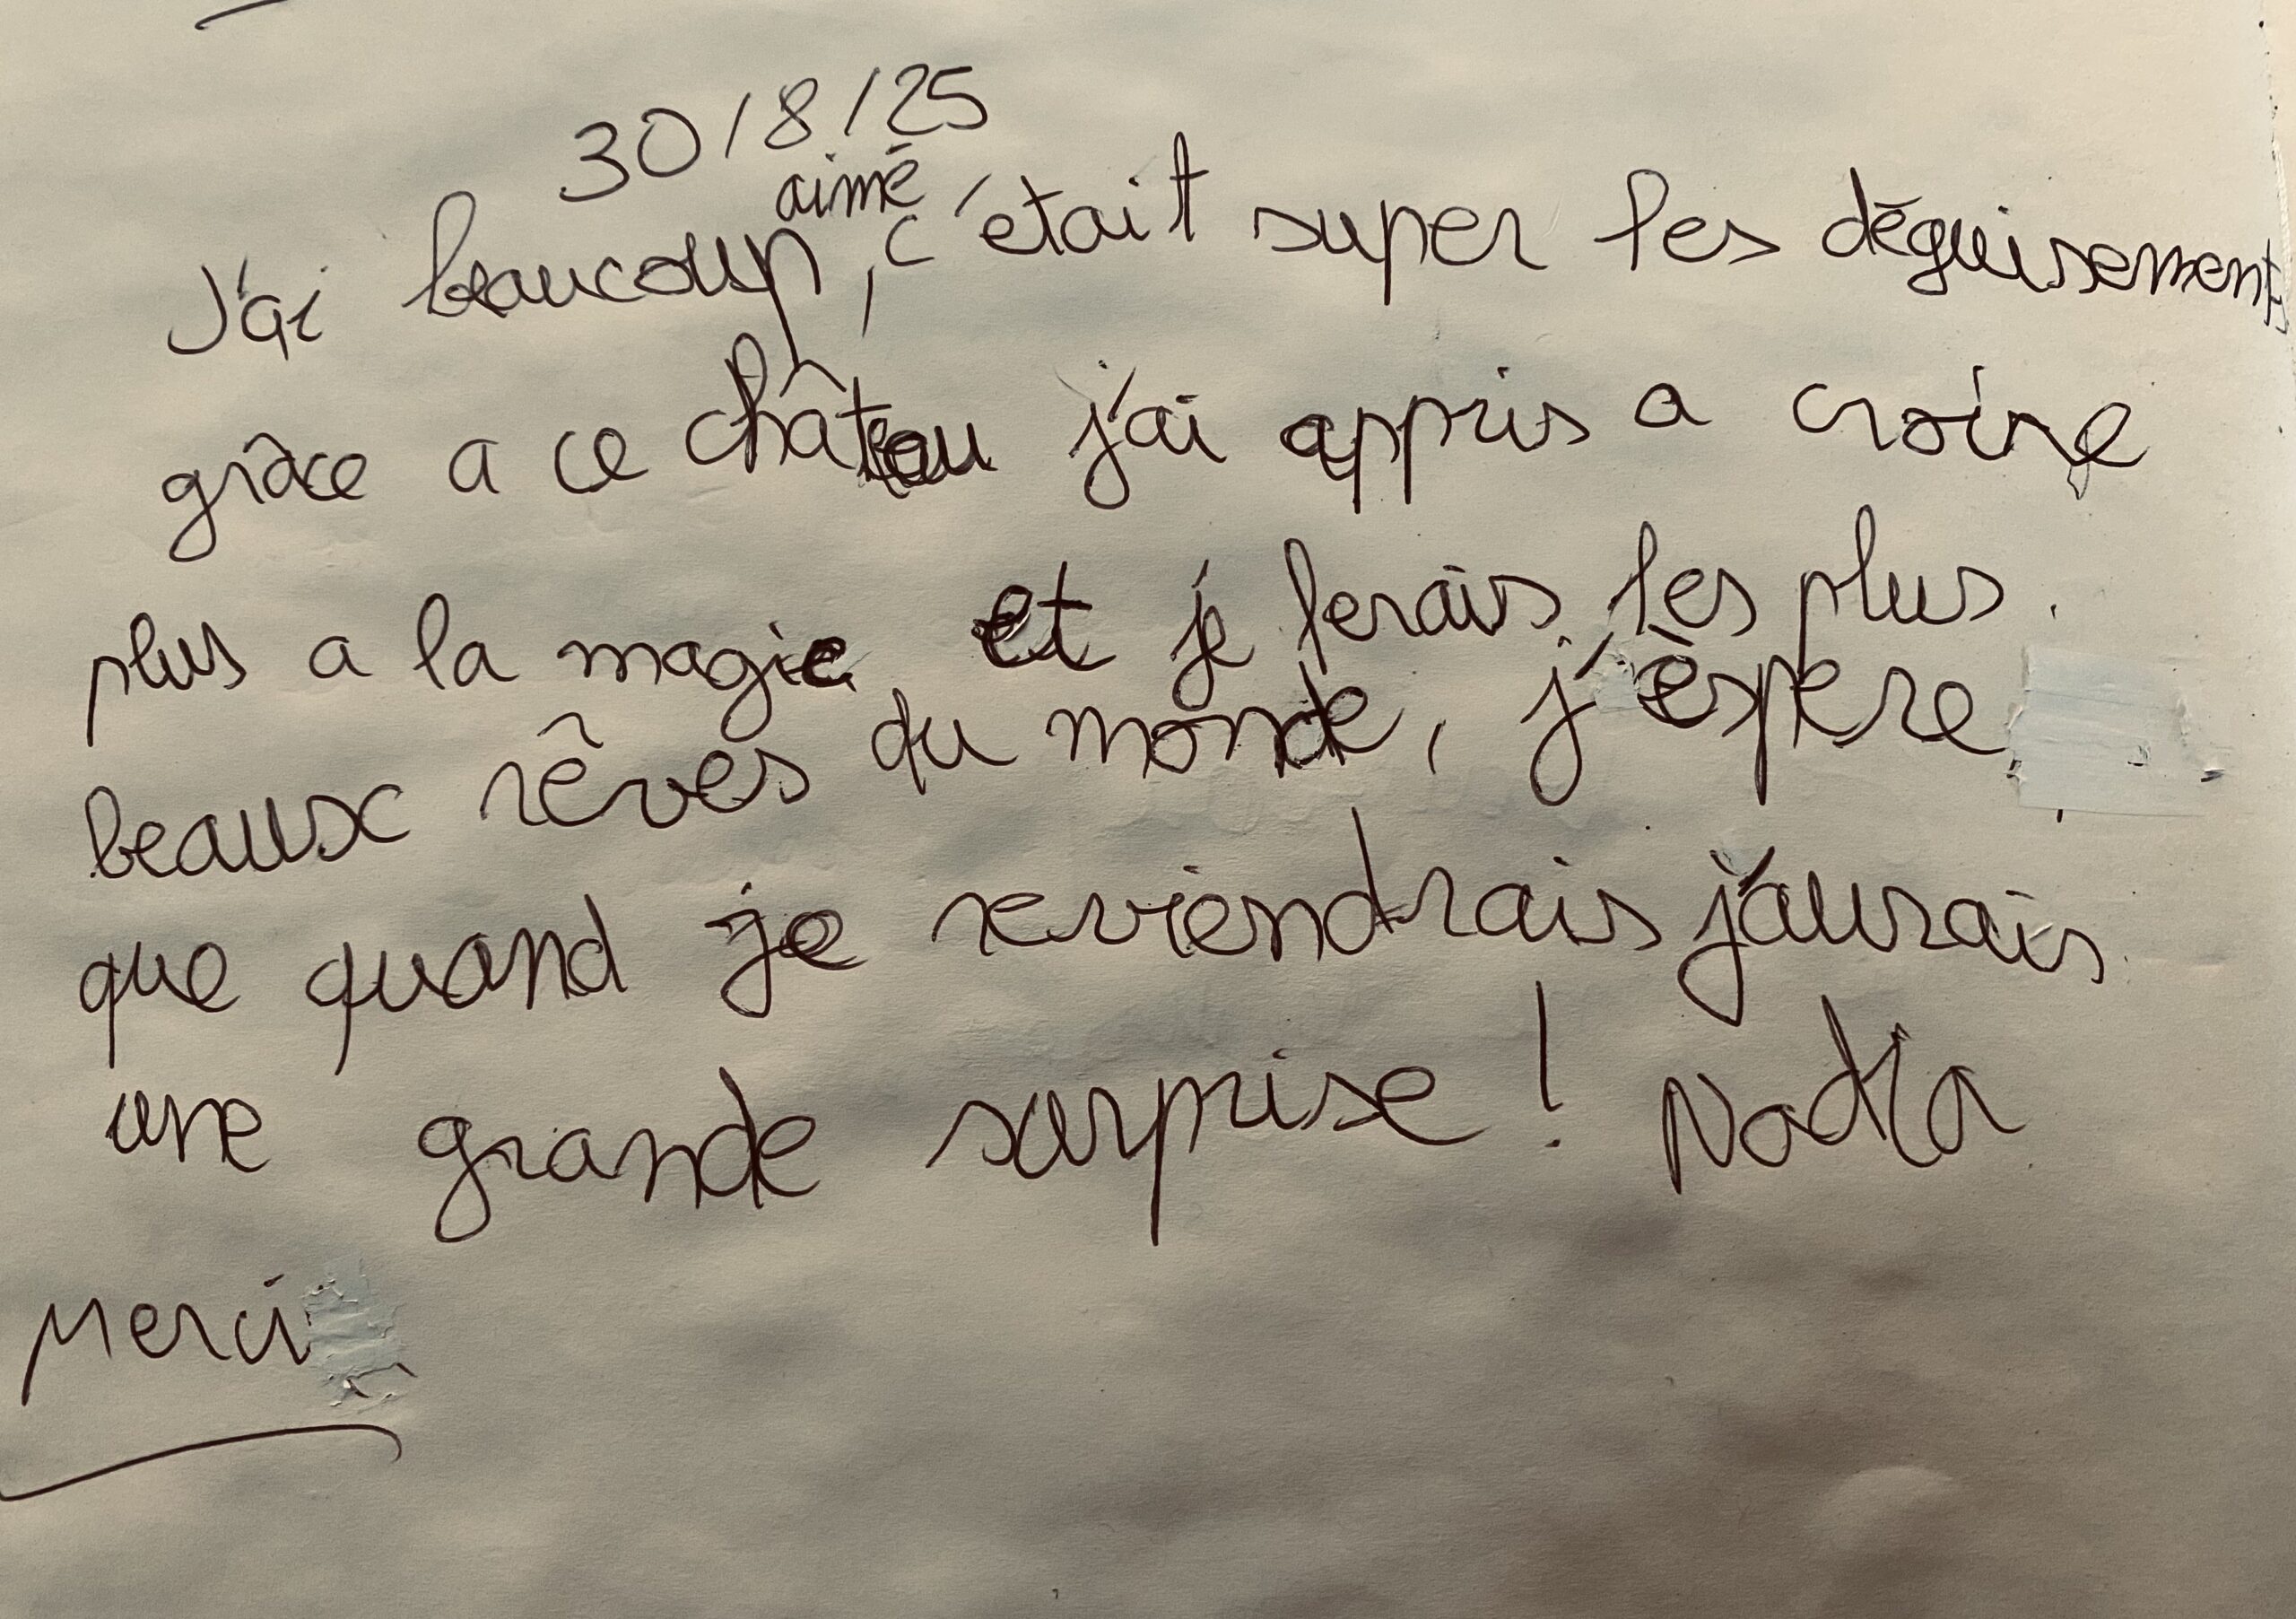 30/8/25
J'ai beaucoup aimé, c'était super les déguisements
grâce a ce château j'ai appris a croire
plus a la magie et je ferais les plus
beaux rêves du monde, j'éspère
que quand je reviendrais j'aurais
une grande surprise ! Nadia
Merci